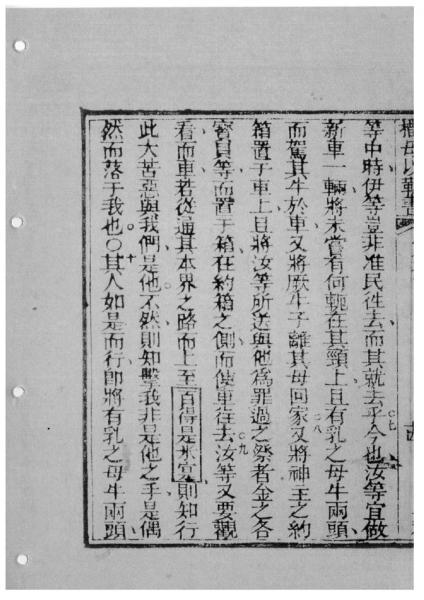 母以勒書
等中時伊等豈非准民徃去而其就去乎〇七今也汝等宜做
新車一輛將未嘗有何軛在其頸上且有乳之母牛兩頭
而駕其牛於車又將厥牛子離其母回家〇八又將神王之約
箱置于車上且將汝等所送與他為罪過之祭者金之各
寶貝等而置于箱在約箱之側而使車往去〇九汝等又要觀
看而車若從通其本界之路而上至百得是米則知行
此大苦惡與我們是他不然則知擊我非是他之手是偶
然而落于我也〇十其人如是而行即將有乳之母牛兩頭